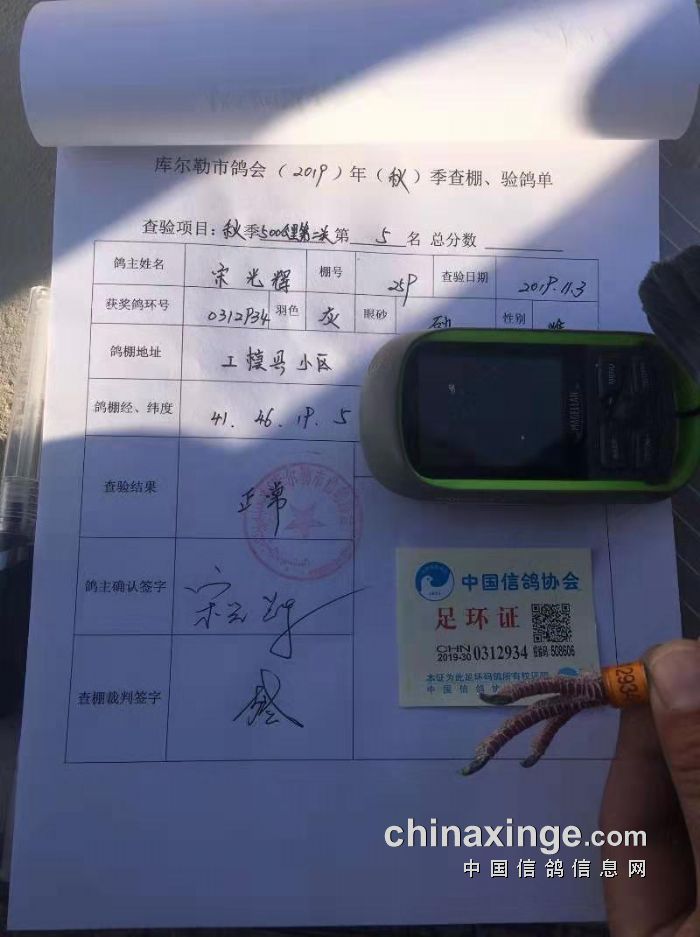 库尔勒市鸽会（2019）年（秋）季查棚、验鸽单
查验项目：秋季500公里第二关第 5 名 总分数
鸽主姓名 宋光辉 棚号 259 查验日期 2019.11.3
获奖鸽环号 0312934 羽色 灰 眼砂 砂 性别 雌
鸽棚地址 工模具小区
鸽棚经、纬度 41.46.19.5
查验结果 正常
鸽主确认签字 宋光辉
查棚裁判签字
MAGELLAN
中国信鸽协会
足环证
CHN
2019-30 0312934 密码:508606
本证为此足环码鸽所有权证明
中国信鸽协
2934
chinaxinge.com
中国信鸽信息网